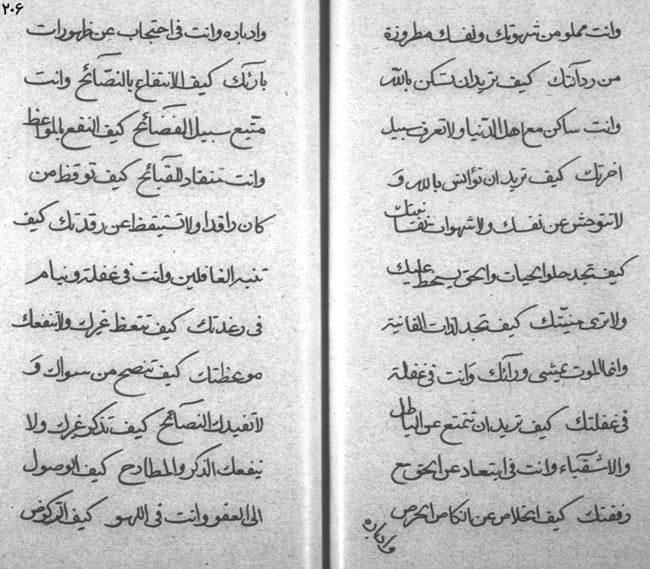 وانت مملو من شهوتك ونفسك مطروزة
من ردآئتك كيف تريد ان تسكن بالله
وانت ساكن مع اهل الدنيا ولا تعرف سبيل
اخرتك كيف تريد ان تؤانس بالله و
لا تتوحش عن نفسك ولا شهوات نفسانيتك
كيف تجد حلو الحيات والحق يسخط عليك
ولا ترى منيتك كيف تجد لذات الفانية
وانما الموت يمشى ورآئك وانت فى غفلة
فى غفلتك كيف تريد ان تمتع عن الباطل
والاشقياء وانت فى ابتعاد عن الحق مع
رفقتك كيف الخلاص عن الحرص
وادباره
٢٠٦
وادباره وانت فى احتجاب عن ظهورات
بارئك كيف الانتفاع بالنصائح وانت
متبع سبيل الفضائح كيف النفع بالمواعظ
وانت تنقاد للقبائح كيف توقظ من
كان راقدا ولا تستيقظ عن رقدتك كيف
تنبه الغافلين وانت فى غفلة ونيام
فى رغدتك كيف تتعظ غيرك ولا تنفعك
موعظتك كيف تنصح من سواك و
لا تفيدك النصائح كيف تذكر غيرك ولا
ينفعك الذكر والمطارح كيف الوصول
الى العفو وانت فى اللهو كيف الركوض